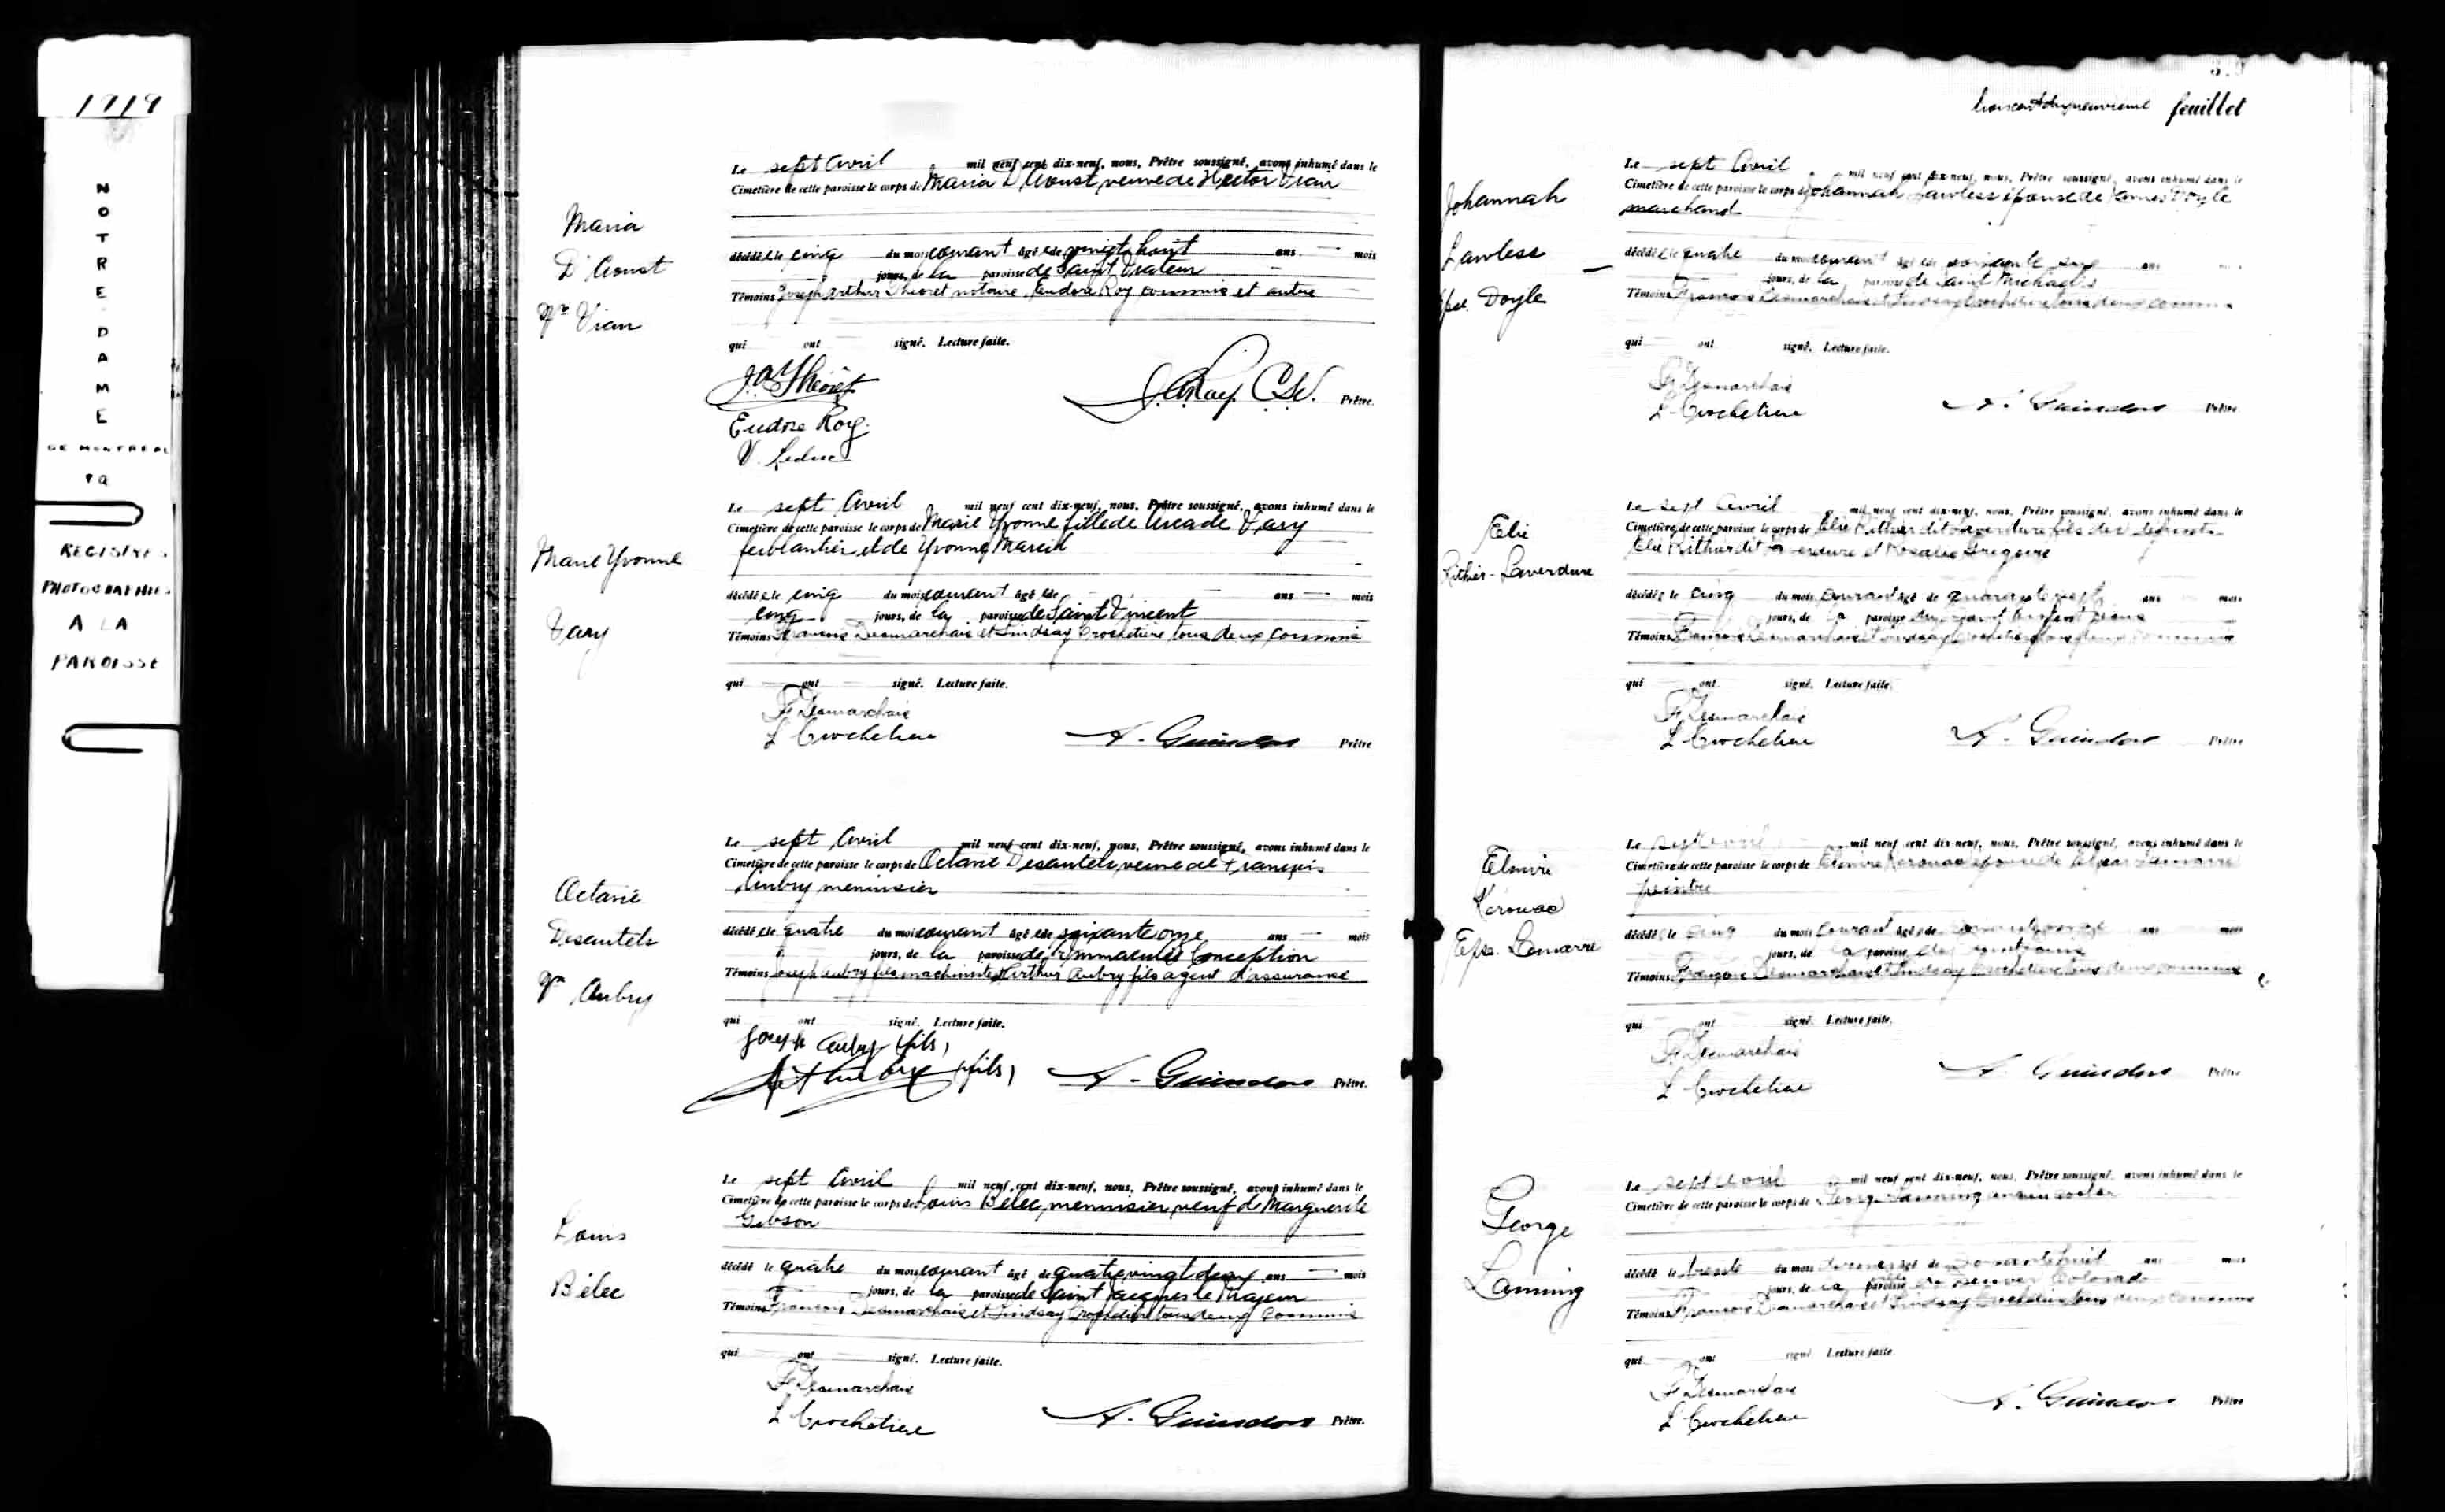 1919
NOTRE-DAME
DE MONTREAL
PQ
REGISTRES
PHOTOGRAPHIES
A LA
PAROISSE
Maria
D'Aoust
Vve Vian
Le sept Avril mil neuf cent dix-neuf, nous, Prêtre soussigné, avons inhumé dans le
Cimetière de cette paroisse le corps de Maria D'Aoust, veuve de Hector Vian
décédée le cinq du mois courant âgée de vingt huit ans — mois
jours, de la paroisse de Saint Viateur
Témoins Joseph Arthur Théoret notaire, Eudore Roy commis et autre
qui ont signé. Lecture faite.
J.A. Théoret
Eudore Roy. Prêtre.
V. Leduc
Marie Yvonne
Vary
Le sept Avril mil neuf cent dix-neuf, nous, Prêtre soussigné, avons inhumé dans le
Cimetière de cette paroisse le corps de Marie Yvonne fille de Arcade Vary
ferblantier et de Yvonne Marcil
décédée le cinq du mois courant âgée de — ans — mois
cinq jours, de la paroisse de Saint Vincent
Témoins François Desmarchais et Lindsay Crochetière tous deux commis
qui ont signé. Lecture faite.
F. Desmarchais
L Crochetiere A. Guindon Prêtre
Octavie
Desautels
Vve Aubry
Le sept Avril mil neuf cent dix-neuf, nous, Prêtre soussigné, avons inhumé dans le
Cimetière de cette paroisse le corps de Octavie Desautels, veuve de François
Aubry menuisier
décédée le quatre du mois courant âgée de soixante onze ans — mois
jours, de la paroisse de l'Immaculée Conception
Témoins Joseph Aubry fils machiniste, Arthur Aubry fils agent d'assurance
qui ont signé. Lecture faite.
Joseph Aubry (fils)
Art Aubry (fils) A. Guindon Prêtre.
Louis
Bélec
Le sept Avril mil neuf cent dix-neuf, nous, Prêtre soussigné, avons inhumé dans le
Cimetière de cette paroisse le corps de Louis Bélec, menuisier, veuf de Marguerite
Gibson
décédé le quatre du mois courant âgé de quatre vingt deux ans — mois
jours, de la paroisse de Saint Jacques le Majeur
Témoins François Desmarchais et Lindsay Crochetière tous deux commis
qui ont signé. Lecture faite.
F. Desmarchais
L Crochetiere A. Guindon Prêtre.
trois cent dix neuvième feuillet
Johannah
Lawless
Epse. Doyle
Le sept Avril mil neuf cent dix-neuf, nous, Prêtre soussigné, avons inhumé dans le
Cimetière de cette paroisse le corps de Johannah Lawless épouse de James Doyle
marchand
décédée le quatre du mois courant âgée de soixante ans mois
jours, de la paroisse de Saint Michael's
Témoins François Desmarchais et Lindsay Crochetière tous deux commis
qui ont signé. Lecture faite.
F. Desmarchais
L Crochetiere A. Guindon Prêtre
Elie
Rithier-Laverdure
Le sept Avril mil neuf cent dix-neuf, nous, Prêtre soussigné, avons inhumé dans le
Cimetière de cette paroisse le corps de Elie Rithier dit Laverdure fils des défunts
Elie Rithier dit Laverdure et Rosalie Gregoire
décédé le cinq du mois courant âgé de ans mois
jours, de la paroisse du Saint Enfant Jésus
Témoins François Desmarchais et Lindsay Crochetière tous deux commis
qui ont signé. Lecture faite.
F. Desmarchais
L Crochetiere A. Guindon Prêtre
Elmire
Kerouac
Epse. Lamarre
Le sept Avril mil neuf cent dix-neuf, nous, Prêtre soussigné, avons inhumé dans le
Cimetière de cette paroisse le corps de Elmire Kerouac épouse de Lamarre
peintre
décédée le cinq du mois courant âgée de ans mois
jours, de la paroisse
Témoins François Desmarchais et Lindsay Crochetière tous deux commis
qui ont signé. Lecture faite.
F. Desmarchais
L Crochetiere A. Guindon Prêtre
George
Lanning
Le sept Avril mil neuf cent dix-neuf, nous, Prêtre soussigné, avons inhumé dans le
Cimetière de cette paroisse le corps de George Lanning
décédé le trente du mois âgé de ans mois
jours, de la Denver Colorado
Témoins François Desmarchais et Lindsay Crochetière tous deux commis
qui ont signé. Lecture faite
F. Desmarchais
L Crochetiere A. Guindon Prêtre